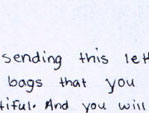 sending this let
bags that you
tiful. And you will